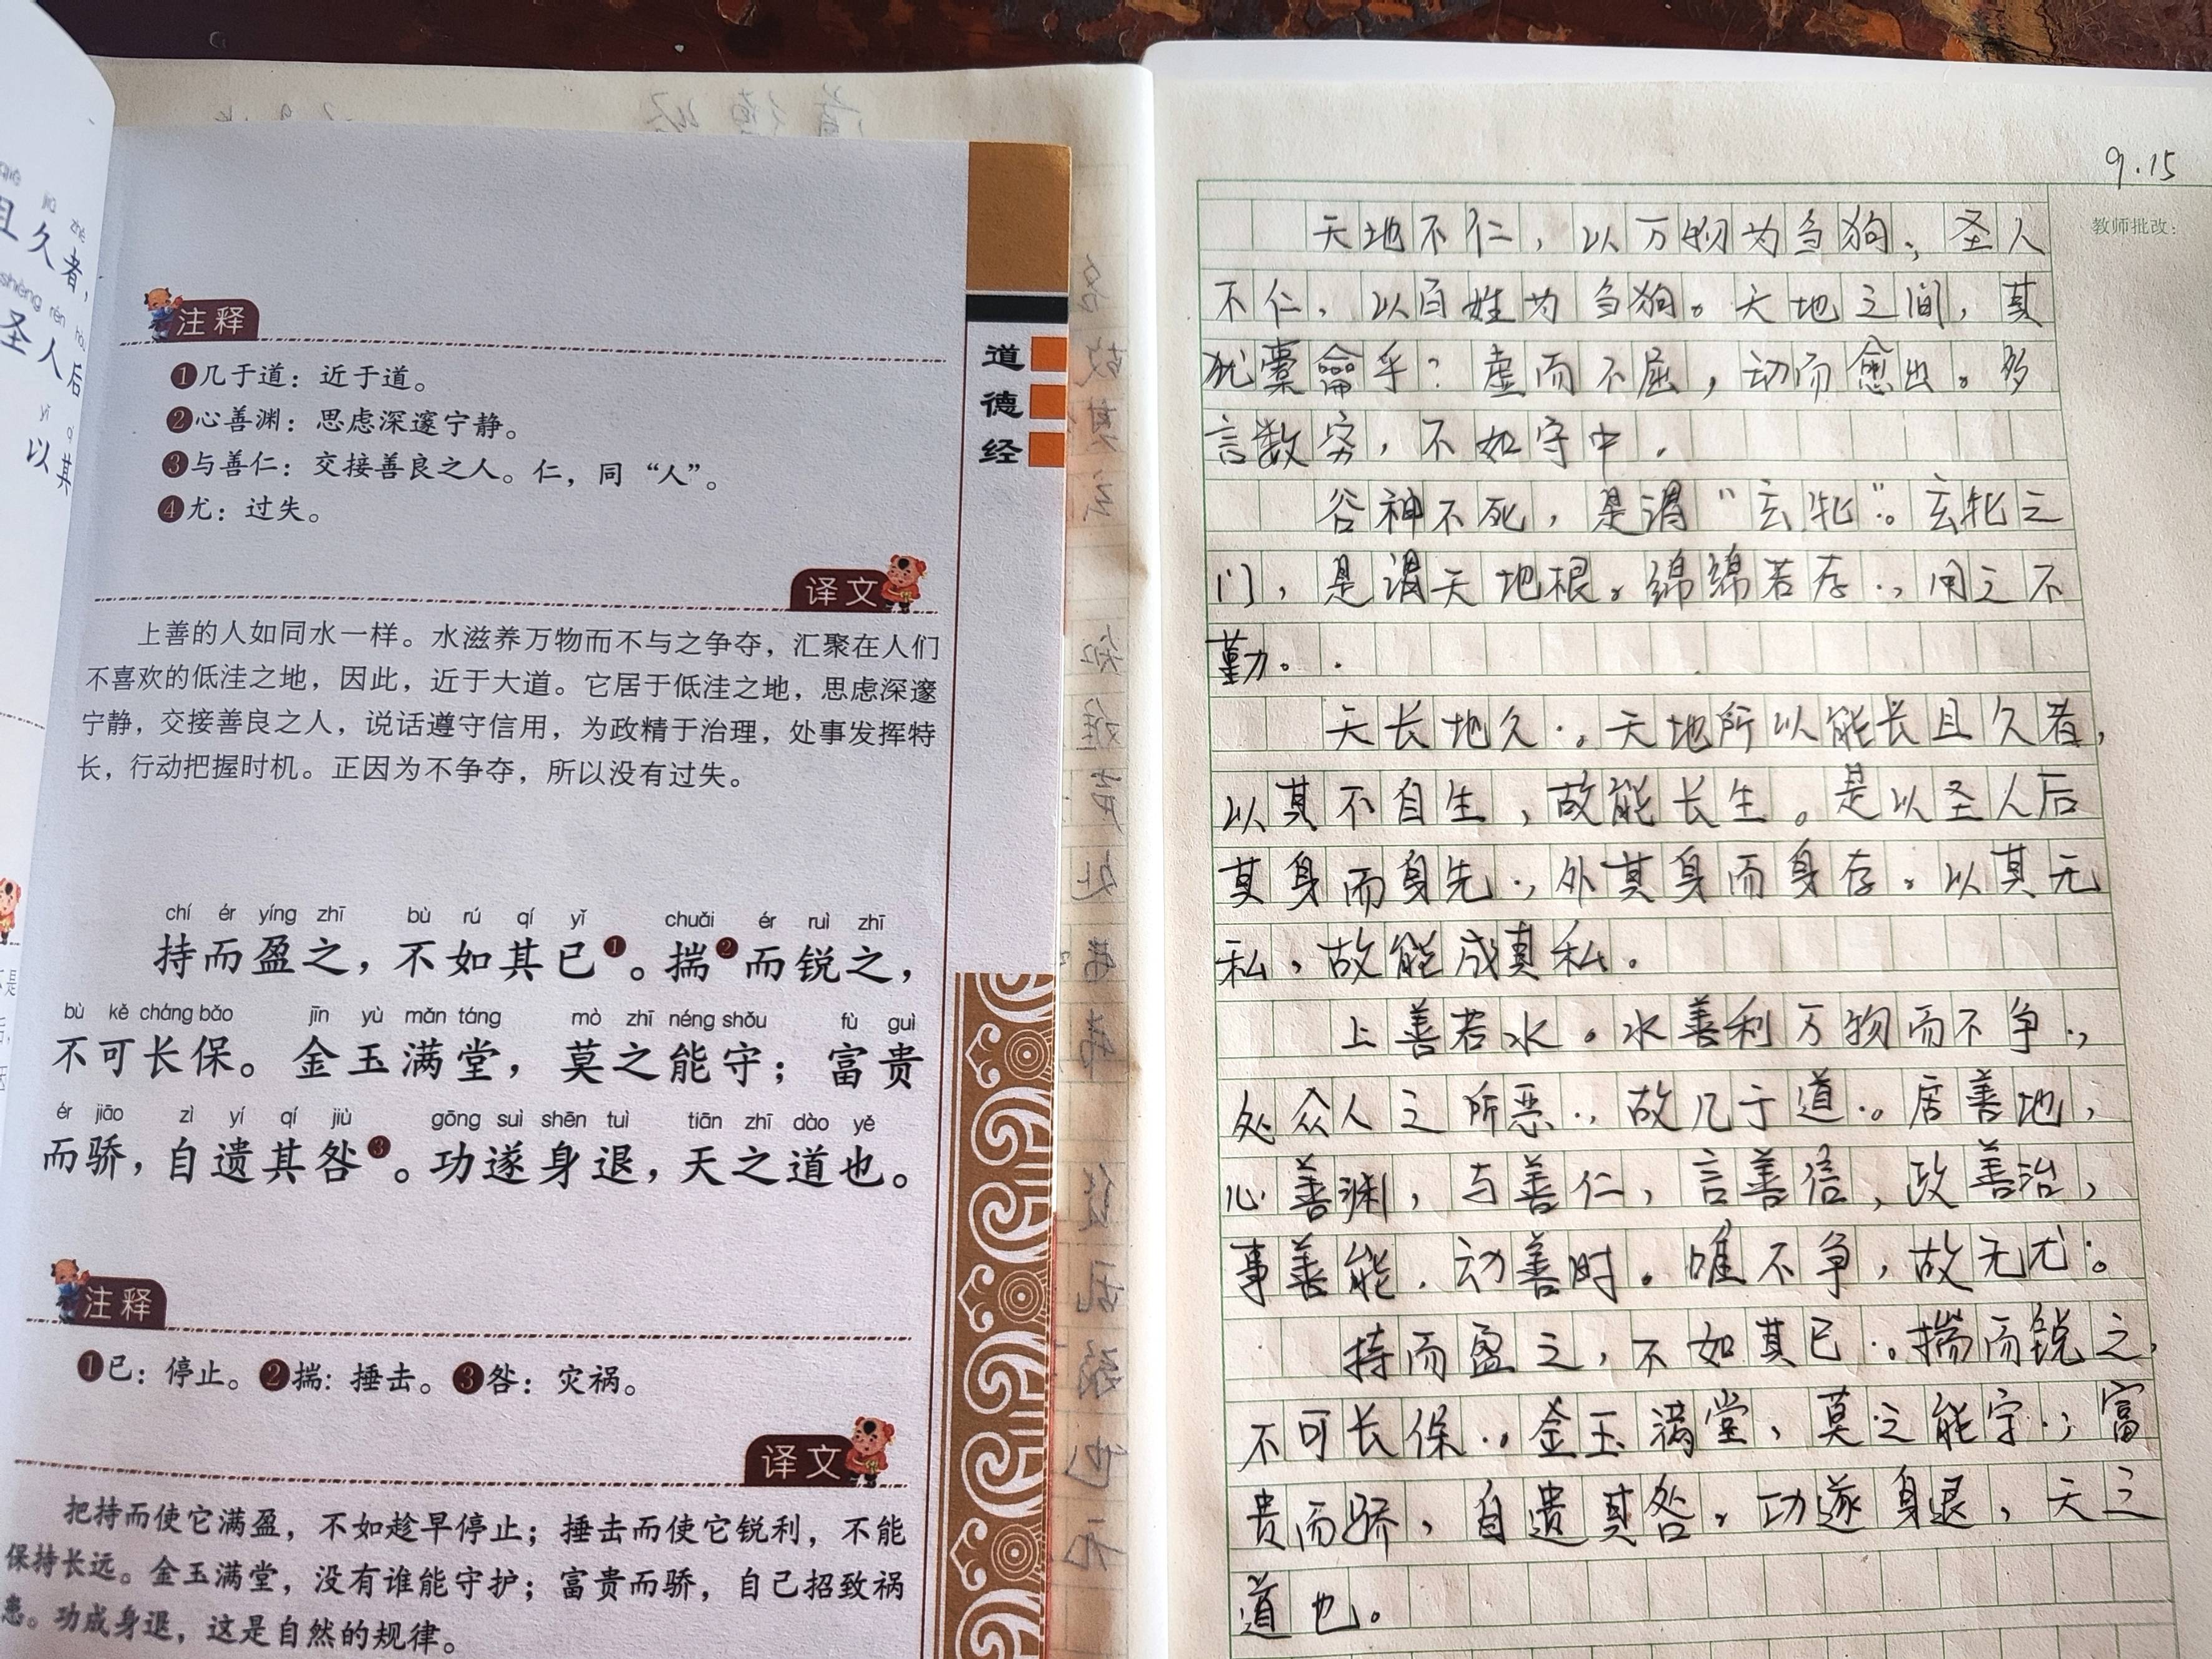 qiě jiǔ zhě
且久者，
shèng rén hòu
圣人后
yǐ qí
以其
道德经
注释
❶几于道：近于道。
❷心善渊：思虑深邃宁静。
❸与善仁：交接善良之人。仁，同“人”。
❹尤：过失。
译文
上善的人如同水一样。水滋养万物而不与之争夺，汇聚在人们
不喜欢的低洼之地，因此，近于大道。它居于低洼之地，思虑深邃
宁静，交接善良之人，说话遵守信用，为政精于治理，处事发挥特
长，行动把握时机。正因为不争夺，所以没有过失。
chí ér yíng zhī bù rú qí yǐ chuǎi ér ruì zhī
持而盈之，不如其已❶。揣❷而锐之，
bù kě cháng bǎo jīn yù mǎn táng mò zhī néng shǒu fù guì
不可长保。金玉满堂，莫之能守；富贵
ér jiāo zì yí qí jiù gōng suì shēn tuì tiān zhī dào yě
而骄，自遗其咎❸。功遂身退，天之道也。
注释
❶已：停止。❷揣：捶击。❸咎：灾祸。
译文
把持而使它满盈，不如趁早停止；捶击而使它锐利，不能
保持长远。金玉满堂，没有谁能守护；富贵而骄，自己招致祸
患。功成身退，这是自然的规律。
9.15
教师批改：
天地不仁，以万物为刍狗；圣人
不仁，以百姓为刍狗。天地之间，其
犹橐龠乎？虚而不屈，动而愈出。多
言数穷，不如守中。
谷神不死，是谓“玄牝”。玄牝之
门，是谓天地根。绵绵若存，用之不
勤。
天长地久。天地所以能长且久者，
以其不自生，故能长生。是以圣人后
其身而身先，外其身而身存。以其无
私，故能成其私。
上善若水。水善利万物而不争，
处众人之所恶，故几于道。居善地，
心善渊，与善仁，言善信，政善治，
事善能，动善时。唯不争，故无尤。
持而盈之，不如其已。揣而锐之，
不可长保。金玉满堂，莫之能守；富
贵而骄，自遗其咎。功遂身退，天之
道也。